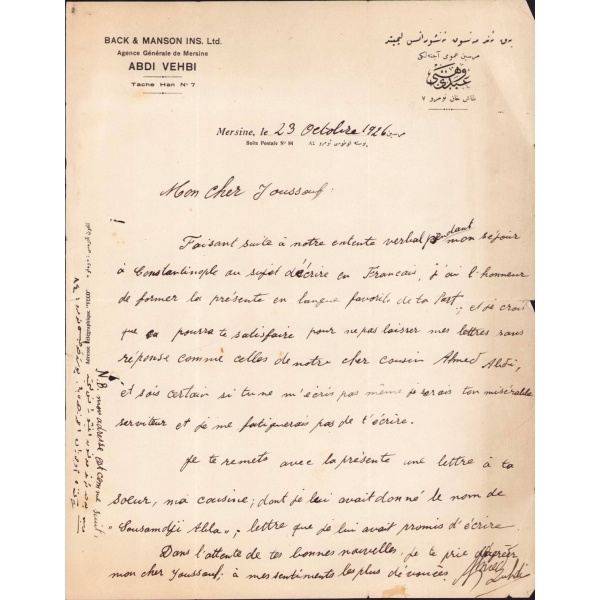 BACK & MANSON INS. Ltd.
Agence Générale de Mersine
ABDI VEHBI
Tache Han Nº 7
مرسين عمومى آجنته‌لكى
عبدى وهبى
طاش خان نومرو ٧
Mersine, le 23 Octobre 1926 مرسين
Boîte Postale Nº 84
Mon cher Youssouf,
Faisant suite à notre entente verbal pendant mon séjour
à Constantinople au sujet d'écrire en Francais, j'ai l'honneur
de former la présente en langue favorite de ta Part; et je crois
que ça pourra te satisfaire pour ne pas laisser mes lettres sans
réponse comme celles de notre cher cousin Ahmed Abdi,
et sois certain si tu ne m'écris pas même je serais ton misérable
serviteur et je me fatiguerais pas de t'écrire.
Je te remets avec la présente une lettre à ta
soeur, ma cousine; dont je lui avait donné le nom de
"Sousamdji Abla"; lettre que je lui avait promis d'écrire.
Dans l'attente de tes bonnes nouvelles, je te prie d'agréer
mon cher Youssouf; à mes sentiments les plus dévouées.
Adresse télégraphique: "VEHBI"
N.B. mon adresse est comme suit: